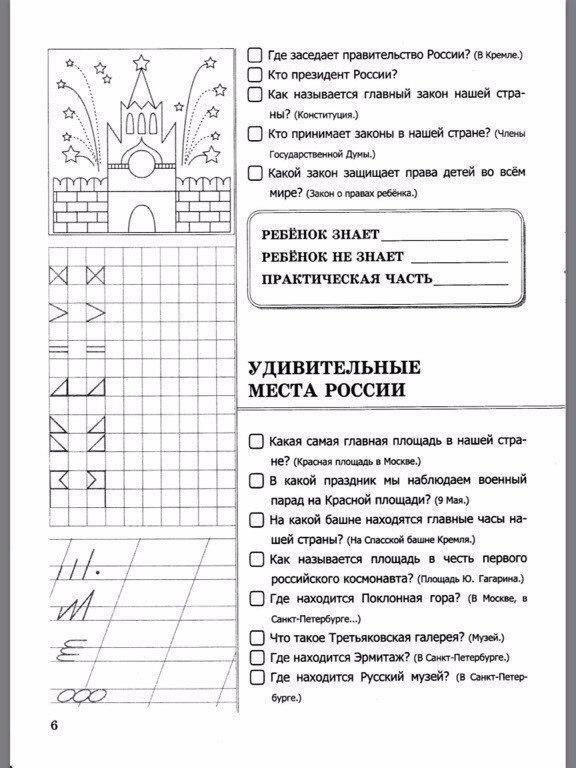 Где заседает правительство России? (В Кремле.)
Кто президент России?
Как называется главный закон нашей стра-
ны? (Конституция.)
Кто принимает законы в нашей стране? (Члены
Государственной Думы.)
Какой закон защищает права детей во всём
мире? (Закон о правах ребёнка.)
РЕБЁНОК ЗНАЕТ
РЕБЁНОК НЕ ЗНАЕТ
ПРАКТИЧЕСКАЯ ЧАСТЬ
УДИВИТЕЛЬНЫЕ
МЕСТА РОССИИ
Какая самая главная площадь в нашей стра-
не? (Красная площадь в Москве.)
В какой праздник мы наблюдаем военный
парад на Красной площади? (9 Мая.)
На какой башне находятся главные часы на-
шей страны? (На Спасской башне Кремля.)
Как называется площадь в честь первого
российского космонавта? (Площадь Ю. Гагарина.)
Где находится Поклонная гора? (В Москве, в
Санкт-Петербурге...)
Что такое Третьяковская галерея? (Музей.)
Где находится Эрмитаж? (В Санкт-Петербурге.)
Где находится Русский музей? (В Санкт-Петер-
бурге.)
6